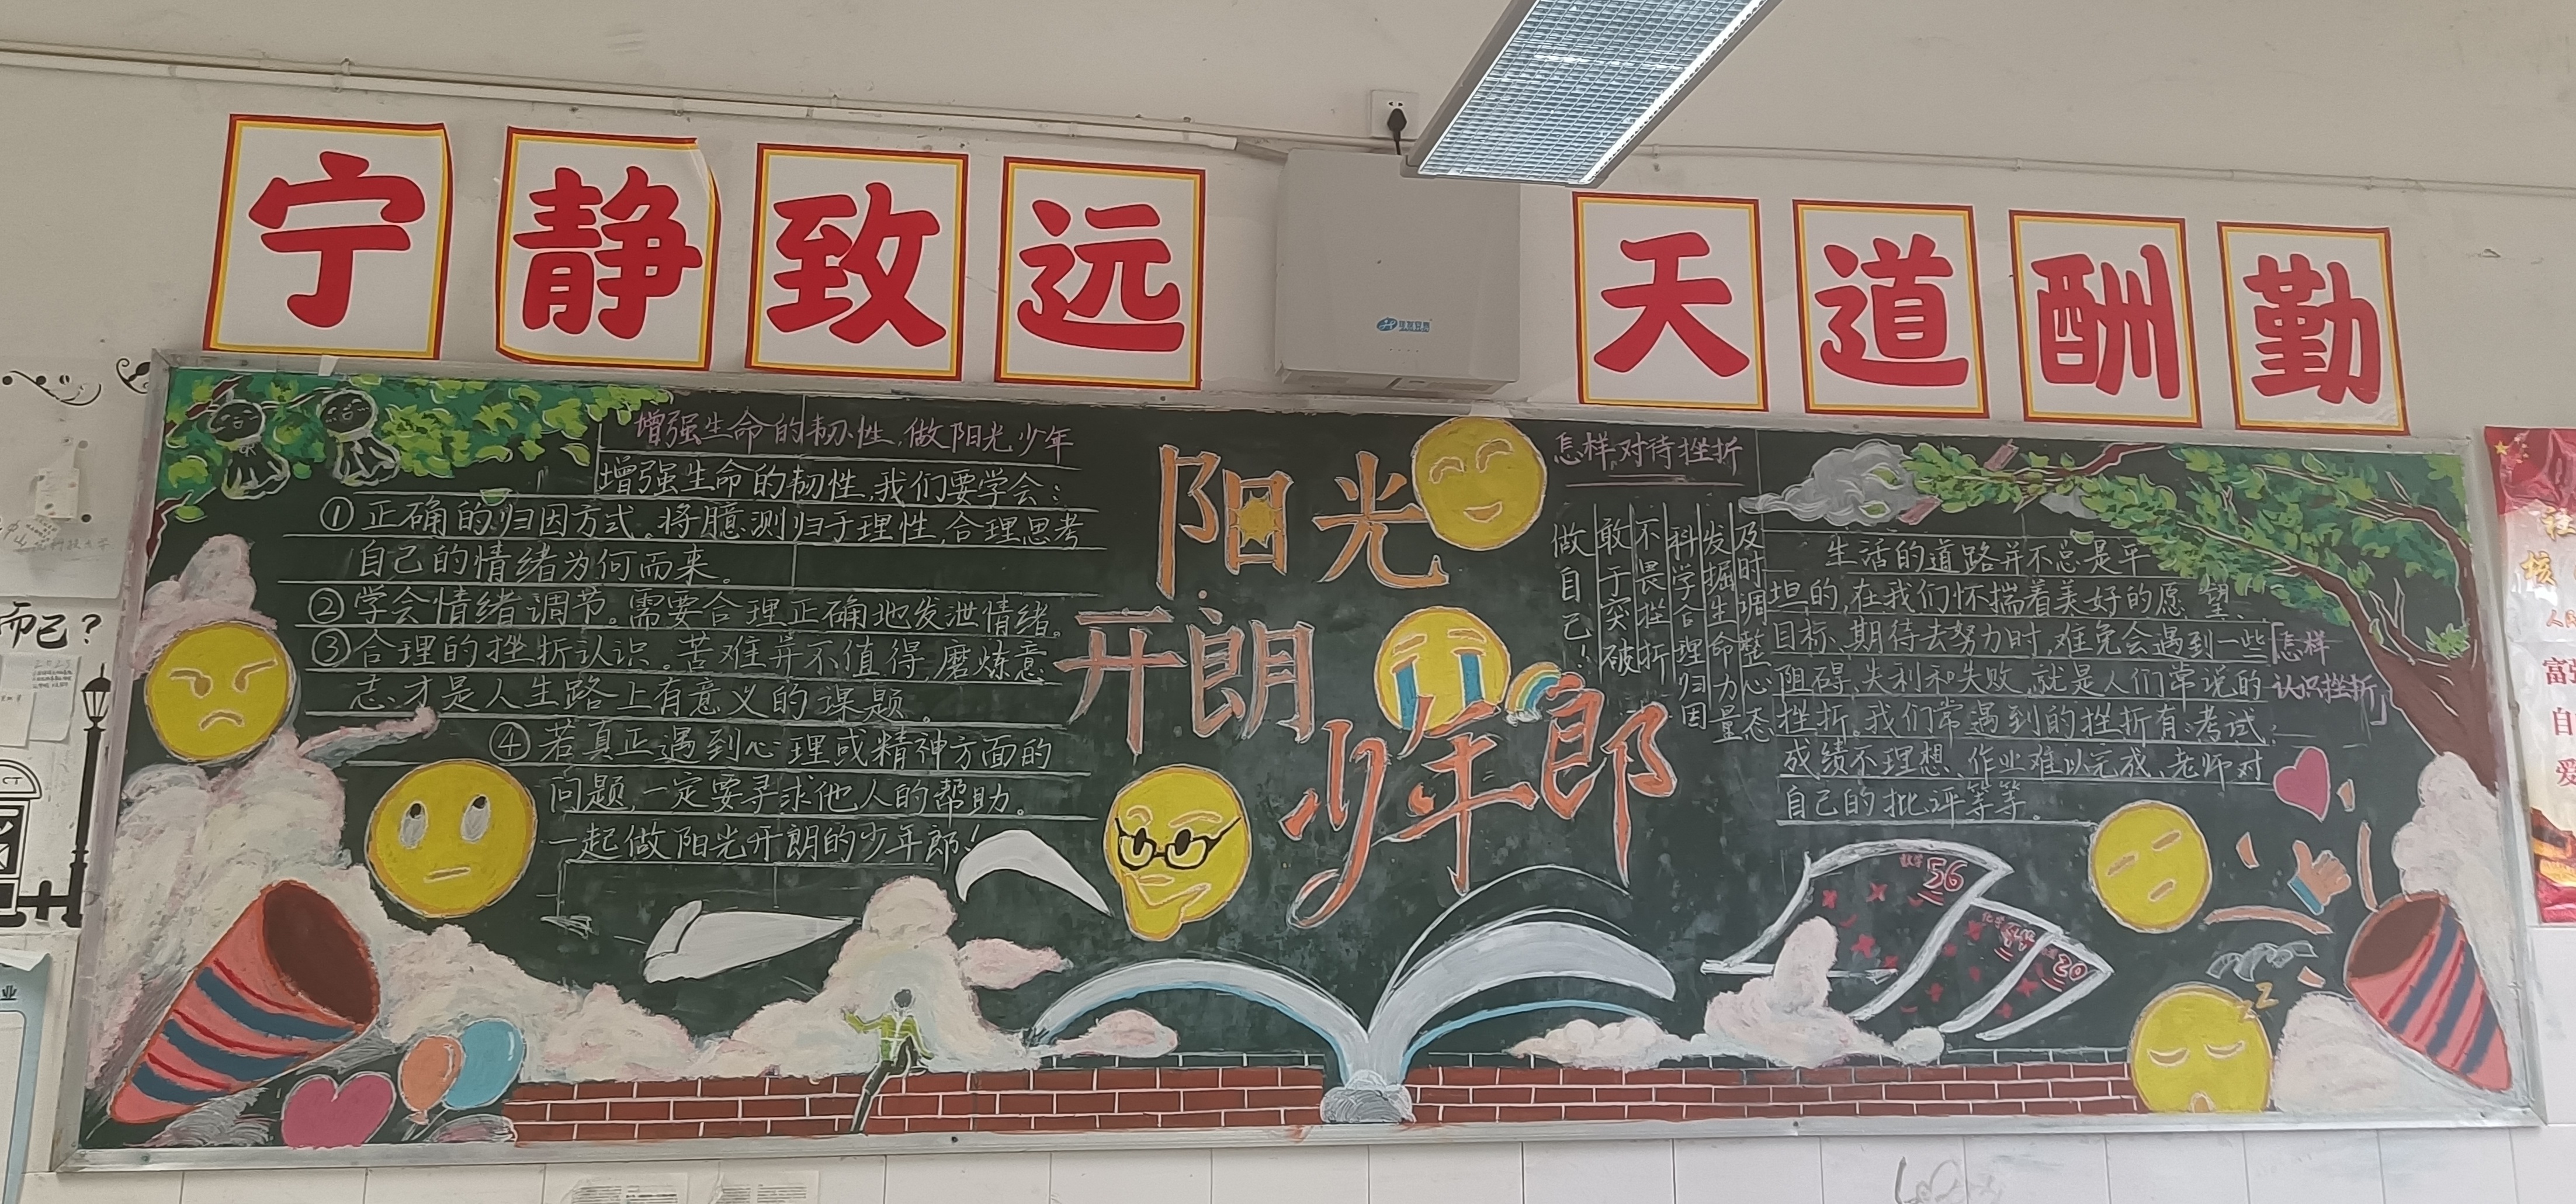 宁静致远
天道酬勤
增强生命的韧性,做阳光少年
增强生命的韧性,我们要学会:
①正确的归因方式。将臆测归于理性,合理思考
自己的情绪为何而来。
②学会情绪调节。需要合理正确地发泄情绪。
③合理的挫折认识。苦难并不值得,磨炼意
志才是人生路上有意义的课题。
④若真正遇到心理或精神方面的
问题,一定要寻求他人的帮助。
一起做阳光开朗的少年郎!
阳光
开朗
少年郎
怎样对待挫折
及时调整心态
发掘生命力量
科学合理归因
不畏挫折
敢于突破
做自己!
生活的道路并不总是平
坦的,在我们怀揣着美好的愿望、
目标、期待去努力时,难免会遇到一些
阻碍、失利和失败,就是人们常说的
挫折。我们常遇到的挫折有:考试
成绩不理想、作业难以完成、老师对
自己的批评等等。
「怎样
认识挫折」
数学 56
化学
20
z
而己?